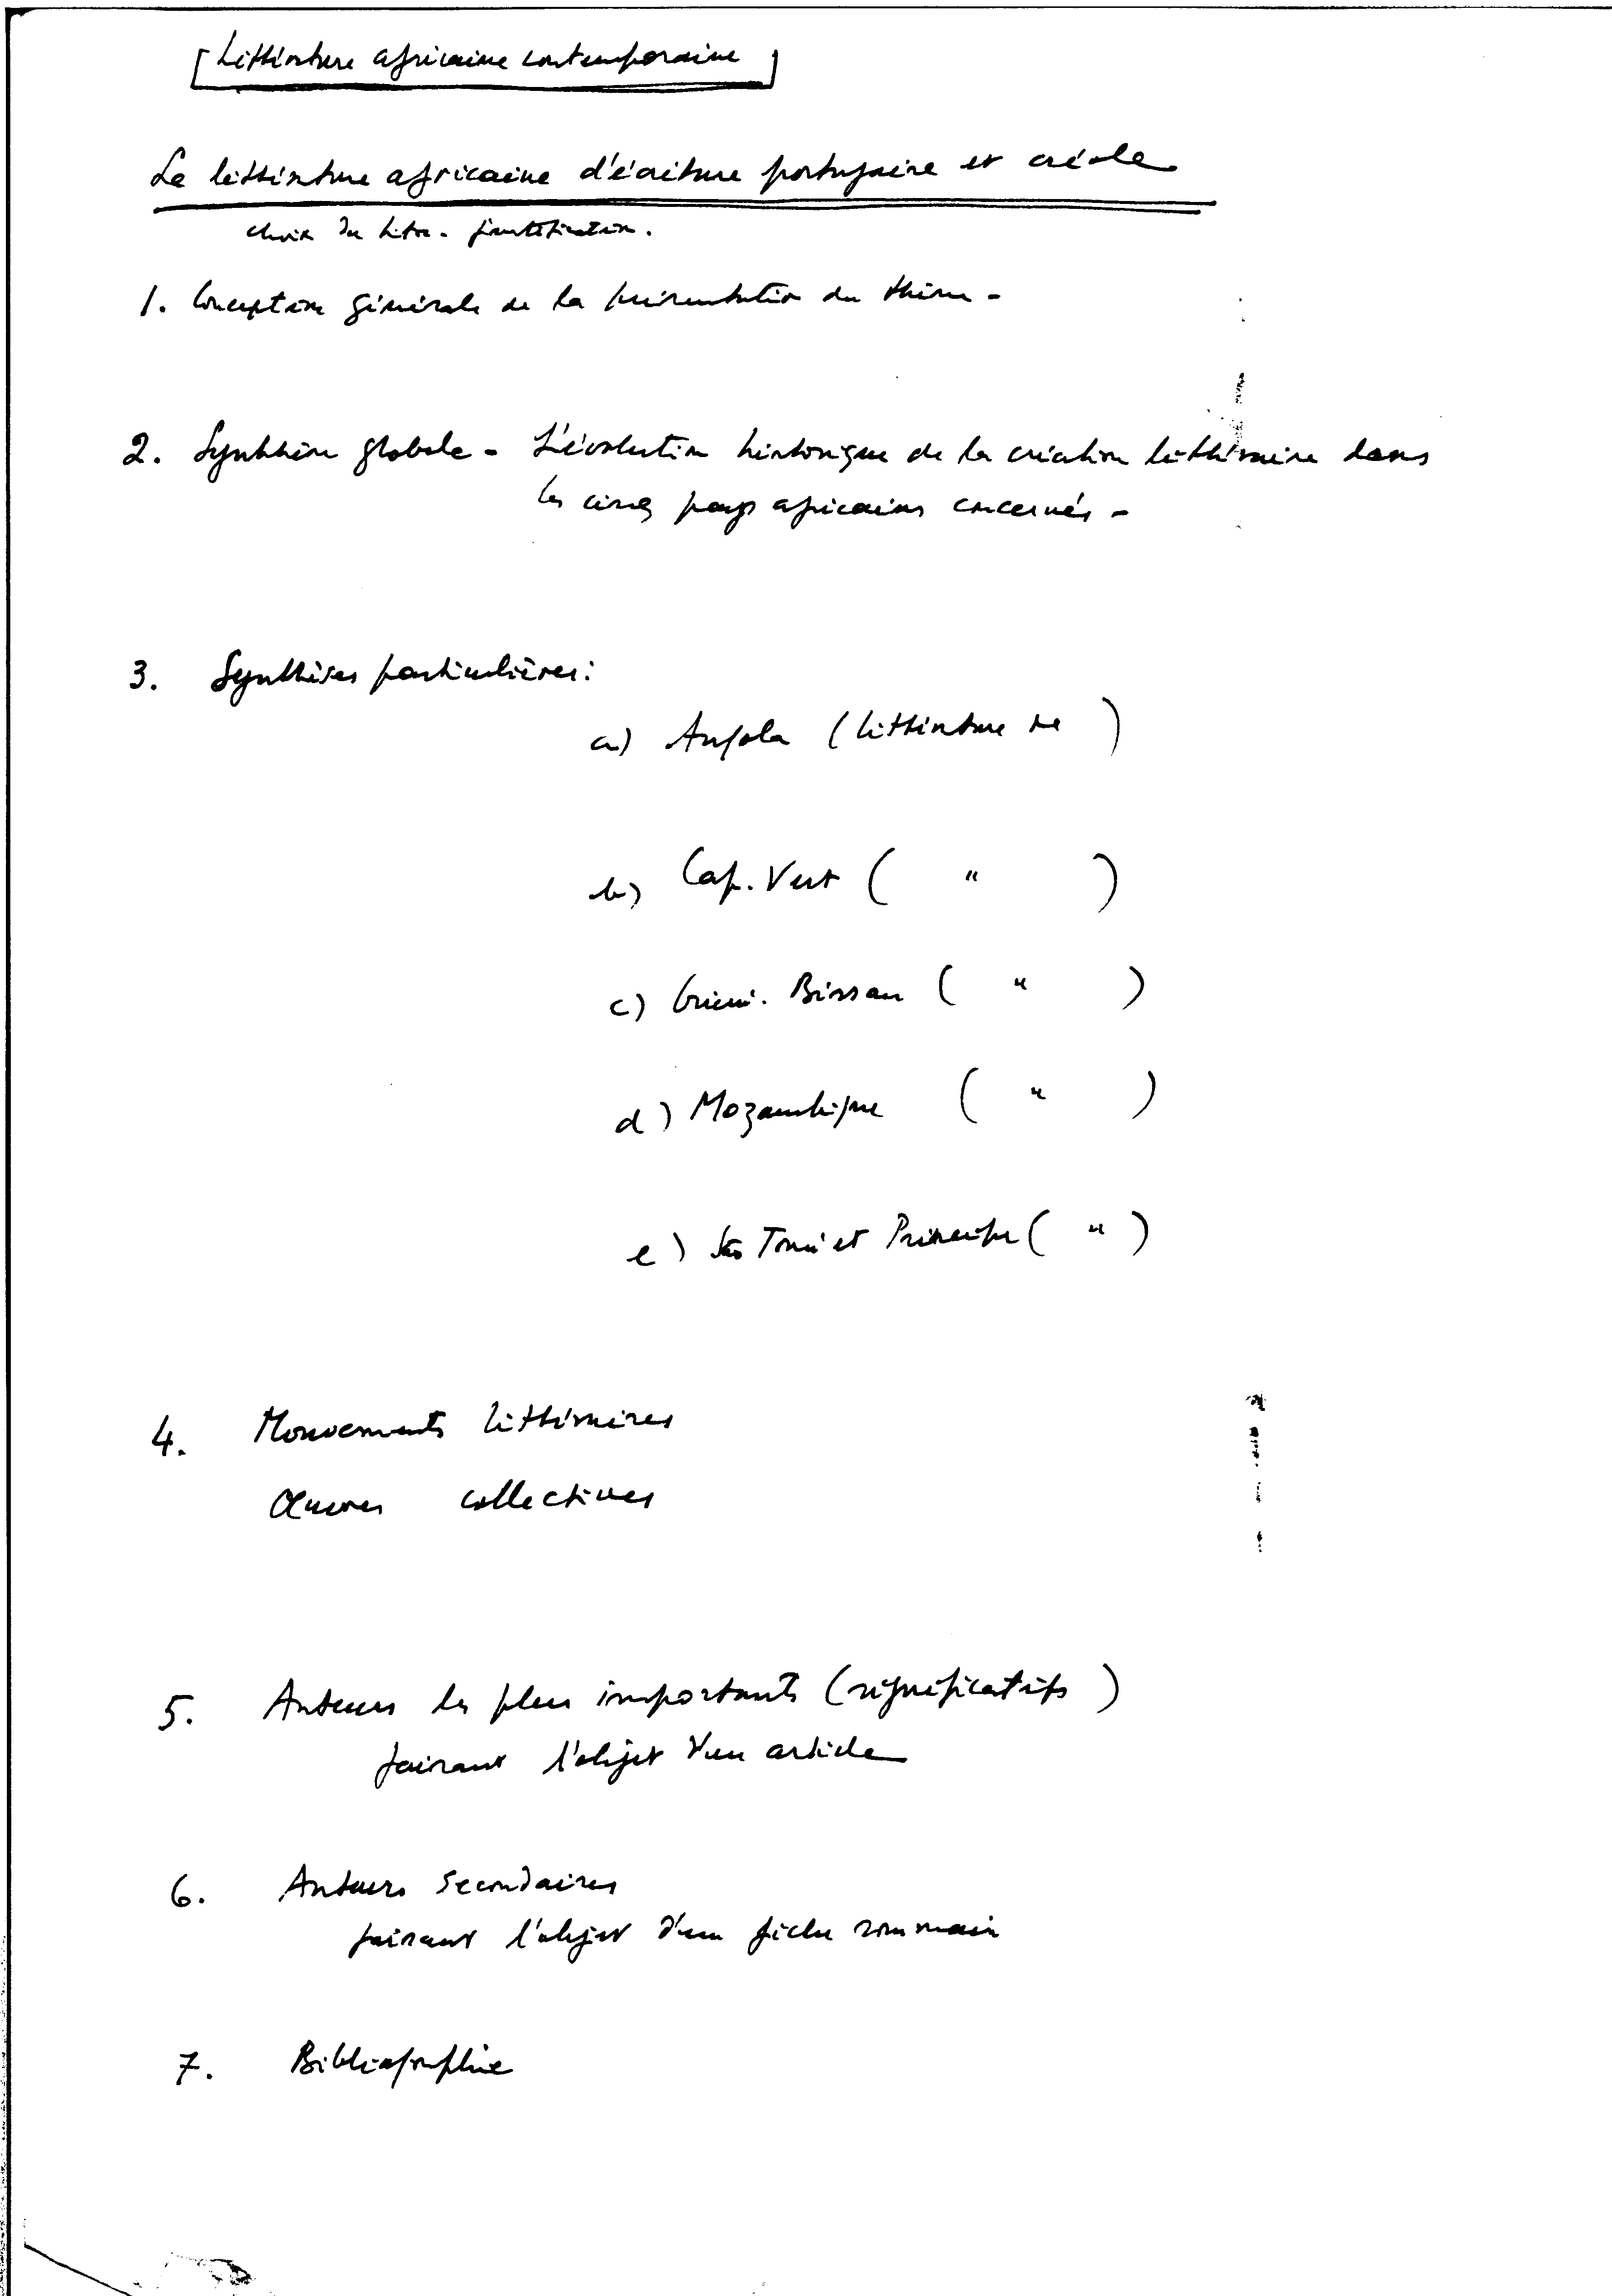 [Littérature africaine contemporaine]
La littérature africaine d'écriture portugaise et créole
choix du titre - justification.
1. Conception générale de la présentation du thème -
2. Synthèse globale - L'évolution historique de la création littéraire dans
les cinq pays africains concernés -
3. Synthèses particulières:
a) Angola (littérature de )
b) Cap. Vert ( " )
c) Guiné. Bissau ( " )
d) Mozambique ( " )
e) São Tomé et Principe ( " )
4. Mouvements littéraires
Œuvres collectives
5. Auteurs les plus importants (significatifs)
faisant l'objet d'un article
6. Auteurs secondaires
faisant l'objet d'une fiche sommaire
7. Bibliographie